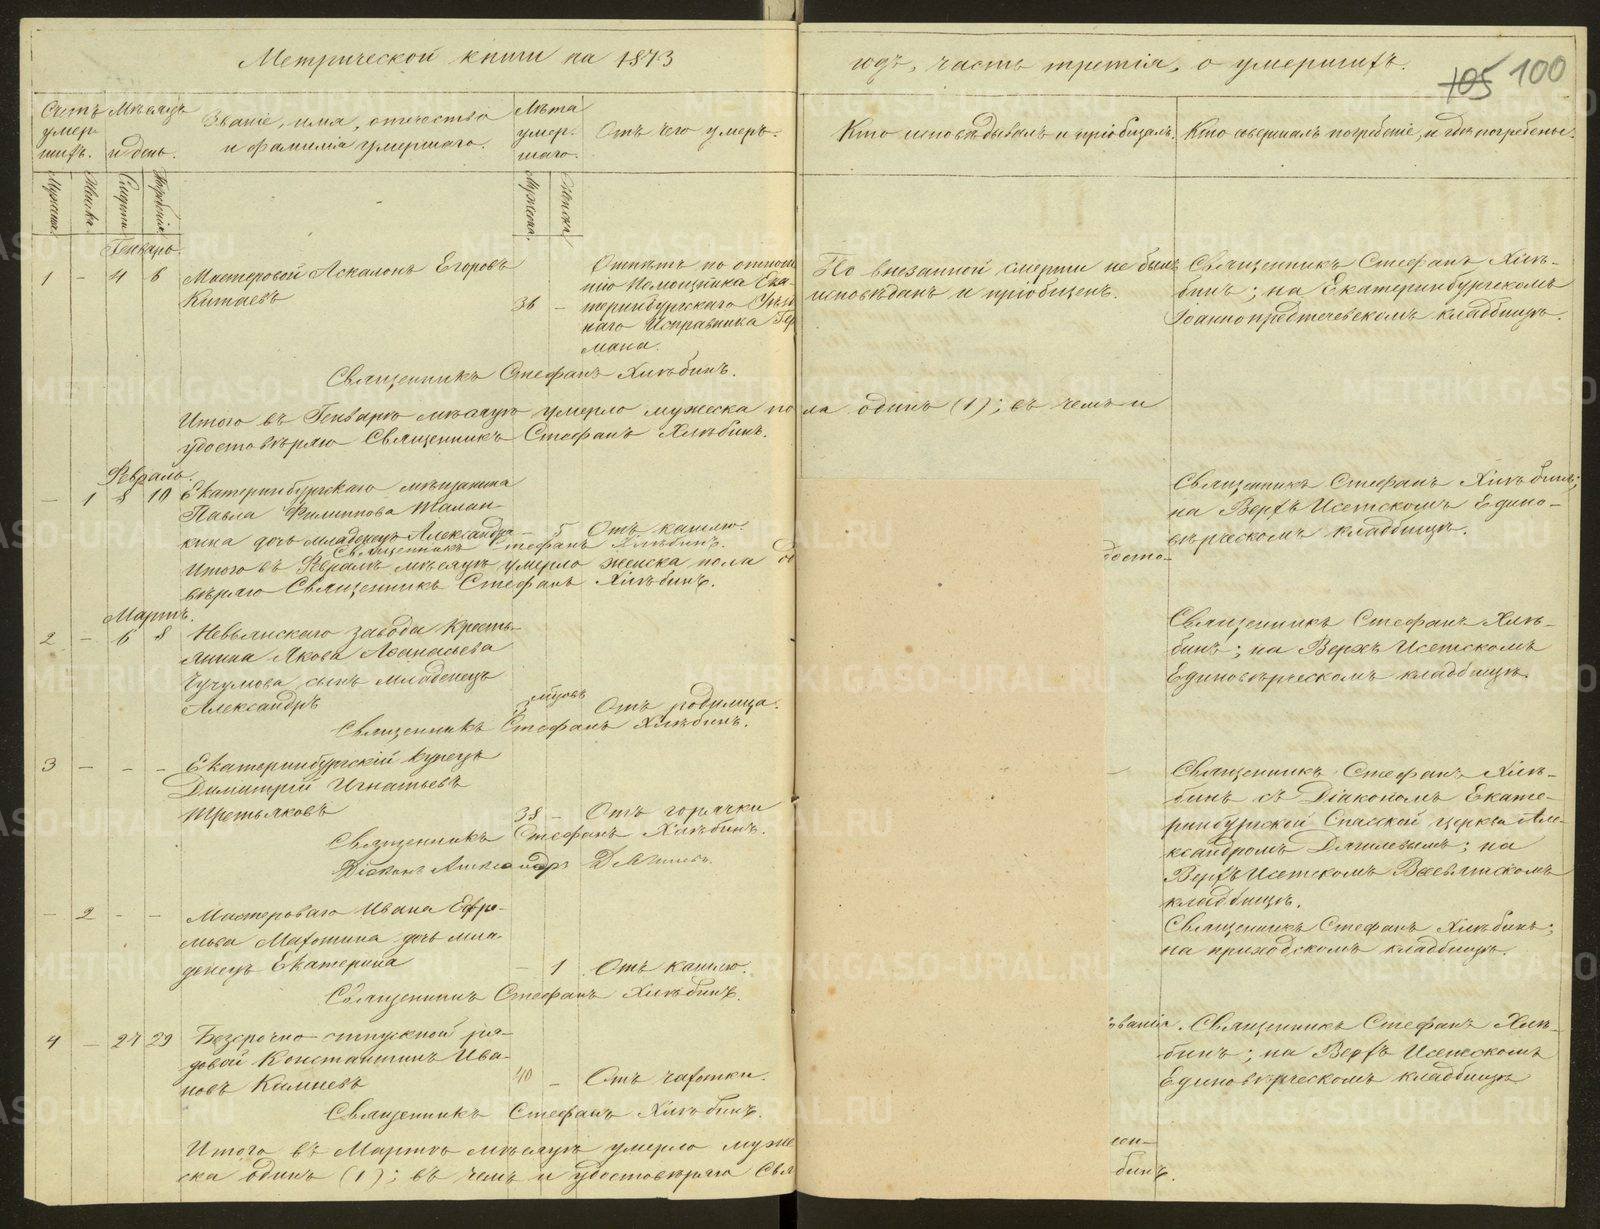 Метрической книги на 1873
годъ, часть третія, о умершихъ.
105 100
Счетъ умер-шихъ.
Мѣсяцъ и день.
Званіе, имя, отчество и фамилія умершаго.
Лѣта умер-шаго.
Отъ чего умеръ.
Кто исповѣдывалъ и пріобщалъ.
Кто совершалъ погребеніе, и гдѣ погребены.
Мужеска. Женска. Смерти Погребенія Мужеска. Женска
Генварь
1 – 4 6 Мастеровой Аскалонъ Егоровъ
Китаевъ
36 –
Отпѣтъ по отноше
нію Помощника Ека
теринбургскаго Уѣзд
наго Исправника Гер
мана.
По внезапной смерти не былъ
исповѣданъ и пріобщенъ.
Священникъ Стефанъ Хлѣ-
бинъ; на Екатеринбургскомъ
Іоаннопредтечевскомъ кладбищѣ.
Священникъ Стефанъ Хлѣбинъ.
Итого въ Генварѣ мѣсяцѣ умерло мужеска пола одинъ (1); въ чемъ и
удостовѣряю Священникъ Стефанъ Хлѣбинъ.
Февраль.
– 1 8 10 Екатеринбургскаго мѣщанина
Павла Филиппова Талан-
кина дочь младенецъ Александра – 5 Отъ кашлю
Священникъ Стефанъ Хлѣбинъ;
на Верхъ Исетскомъ Едино-
вѣрческомъ кладбищѣ.
Священникъ Стефанъ Хлѣбинъ.
Итого въ Февралѣ мѣсяцѣ умерло женска пола
досто-
вѣряю Священникъ Стефанъ Хлѣбинъ.
Мартъ.
2 – 6 8 Невьянскаго завода Кресть-
янина Якова Аѳанасьева
Чучумова, сынъ младенецъ
Александръ
Отъ родимца.
Священникъ Стефанъ Хлѣ-
бинъ; на Верхъ Исетскомъ
Единовѣрческомъ кладбищѣ.
Священникъ Стефанъ Хлѣбинъ.
3 – – – Екатеринбургскій купецъ
Димитрій Игнатьевъ
Третьяковъ 38 – Отъ горячки
Священникъ Стефанъ Хлѣ-
бинъ съ Діакономъ Екате-
ринбургской Спасской церкви Але-
ксандромъ Дягилевымъ; на
Верхъ Исетскомъ Всесвятскомъ
кладбищѣ.
Священникъ Стефанъ Хлѣбинъ.
Діаконъ Александръ Дягилевъ.
– 2 – – Мастероваго Ивана Ефре-
мова Махотина дочь мла-
денецъ Екатерина – 1 Отъ кашлю.
Священникъ Стефанъ Хлѣбинъ;
на приходскомъ кладбищѣ.
Священникъ Стефанъ Хлѣбинъ.
4 – 27 29 Безсрочно-отпускной ря-
довой Константинъ Ива-
новъ Камневъ 40 – Отъ чахотки.
Священникъ Стефанъ Хлѣ-
бинъ; на Верхъ Исетскомъ
Единовѣрческомъ кладбищѣ
Священникъ Стефанъ Хлѣбинъ.
Итого въ Мартѣ мѣсяцѣ умерло муже
ска одинъ (1); въ чемъ и удостовѣряю Свя
бинъ.
METRIKI.GASO-URAL.RU